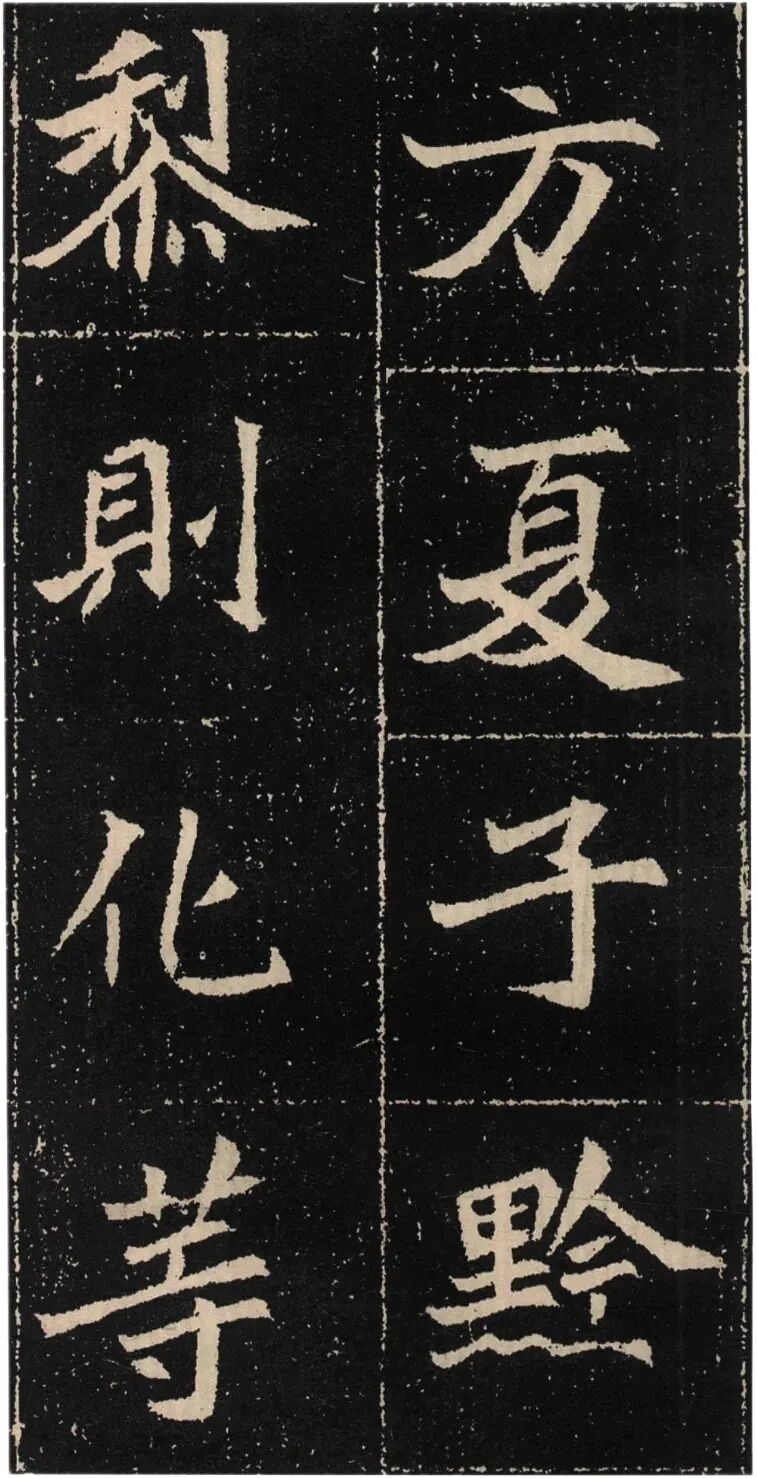 方夏子黔
黎則化等